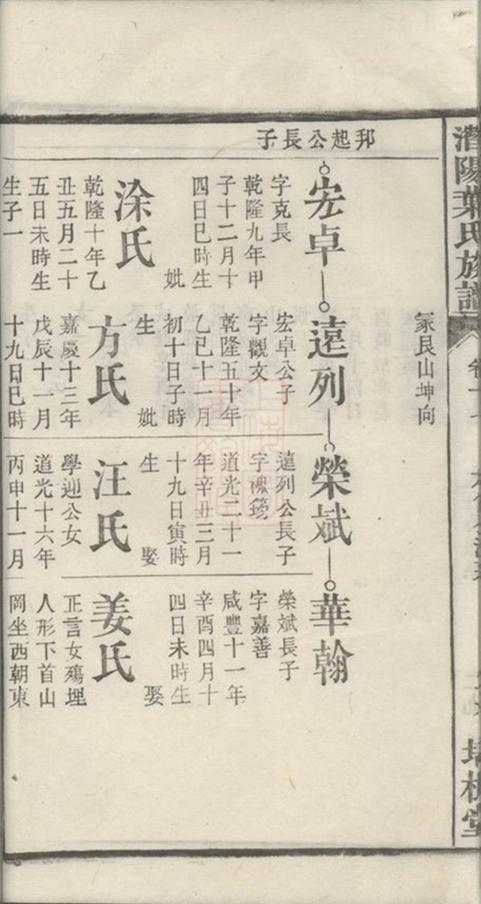 葉氏族譜
冢艮山坤向
邦起公長子
宏卓
字克長
乾隆九年甲
子十二月十
四日巳時生
妣
涂氏
乾隆十年乙
丑五月二十
五日未時生
生子一
遠列
宏卓公子
字觀文
乾隆五十年
乙巳十一月
初十日子時
生 妣
方氏
嘉慶十三年
戊辰十一月
十九日巳時
榮斌
遠列公長子
道光二十一
年辛丑三月
十九日寅時
生 娶
汪氏
學迎公女
道光十六年
丙申十一月
華翰
榮斌長子
字嘉善
咸豐十一年
辛酉四月十
四日未時生
娶
姜氏
正言女殤埋
人形下首山
岡坐西朝東